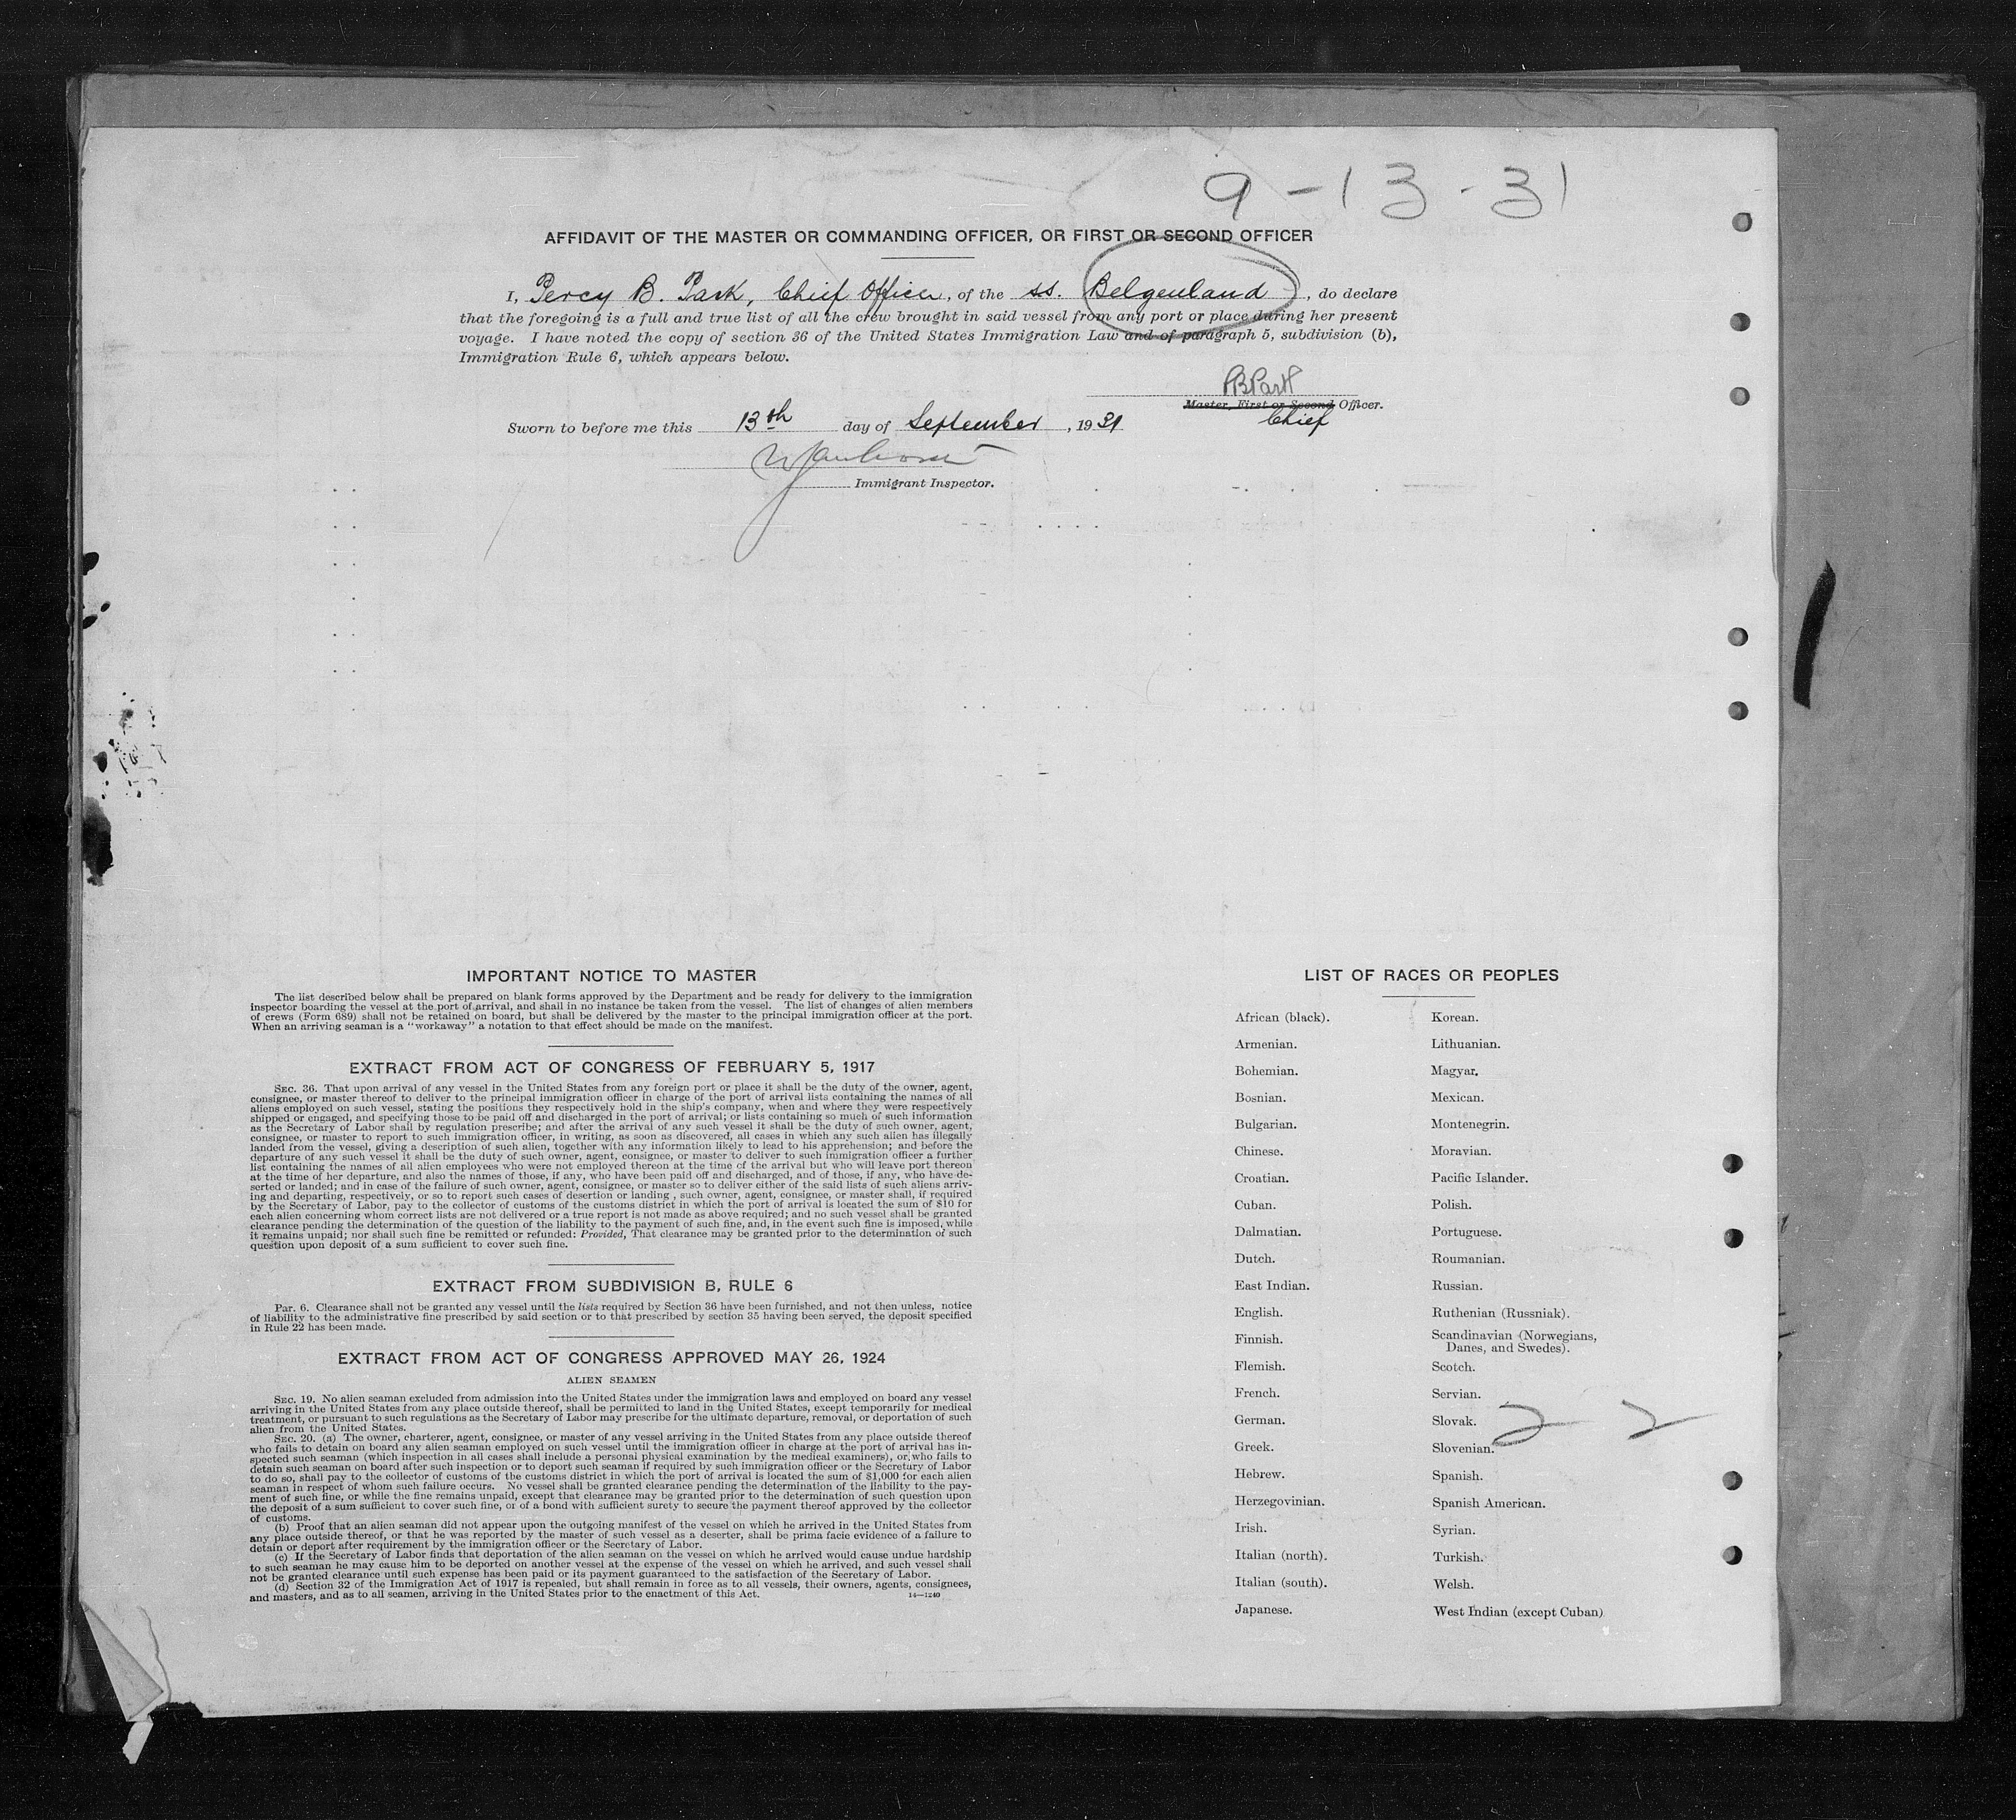 9-13-31
AFFIDAVIT OF THE MASTER OR COMMANDING OFFICER, OR FIRST OR SECOND OFFICER
I, Percy B. Park, Chief Officer, of the ss. Belgenland, do declare
that the foregoing is a full and true list of all the crew brought in said vessel from any port or place during her present
voyage. I have noted the copy of section 36 of the United States Immigration Law and of paragraph 5, subdivision (b),
Immigration Rule 6, which appears below.
PBPark
Master, First or Second Officer.
Chief
Sworn to before me this 13th day of September, 1931
Immigrant Inspector.
IMPORTANT NOTICE TO MASTER
The list described below shall be prepared on blank forms approved by the Department and be ready for delivery to the immigration
inspector boarding the vessel at the port of arrival, and shall in no instance be taken from the vessel. The list of changes of alien members
of crews (Form 689) shall not be retained on board, but shall be delivered by the master to the principal immigration officer at the port.
When an arriving seaman is a "workaway" a notation to that effect should be made on the manifest.
EXTRACT FROM ACT OF CONGRESS OF FEBRUARY 5, 1917
SEC. 36. That upon arrival of any vessel in the United States from any foreign port or place it shall be the duty of the owner, agent,
consignee, or master thereof to deliver to the principal immigration officer in charge of the port of arrival lists containing the names of all
aliens employed on such vessel, stating the positions they respectively hold in the ship's company, when and where they were respectively
shipped or engaged, and specifying those to be paid off and discharged in the port of arrival; or lists containing so much of such information
as the Secretary of Labor shall by regulation prescribe; and after the arrival of any such vessel it shall be the duty of such owner, agent,
consignee, or master to report to such immigration officer, in writing, as soon as discovered, all cases in which any such alien has illegally
landed from the vessel, giving a description of such alien, together with any information likely to lead to his apprehension; and before the
departure of any such vessel it shall be the duty of such owner, agent, consignee, or master to deliver to such immigration officer a further
list containing the names of all alien employees who were not employed thereon at the time of the arrival but who will leave port thereon
at the time of her departure, and also the names of those, if any, who have been paid off and discharged, and of those, if any, who have de-
serted or landed; and in case of the failure of such owner, agent, consignee, or master so to deliver either of the said lists of such aliens arriv-
ing and departing, respectively, or so to report such cases of desertion or landing , such owner, agent, consignee, or master shall, if required
by the Secretary of Labor, pay to the collector of customs of the customs district in which the port of arrival is located the sum of $10 for
each alien concerning whom correct lists are not delivered or a true report is not made as above required; and no such vessel shall be granted
clearance pending the determination of the question of the liability to the payment of such fine, and, in the event such fine is imposed, while
it remains unpaid; nor shall such fine be remitted or refunded: Provided, That clearance may be granted prior to the determination of such
question upon deposit of a sum sufficient to cover such fine.
EXTRACT FROM SUBDIVISION B, RULE 6
Par. 6. Clearance shall not be granted any vessel until the lists required by Section 36 have been furnished, and not then unless, notice
of liability to the administrative fine prescribed by said section or to that prescribed by section 35 having been served, the deposit specified
in Rule 22 has been made.
EXTRACT FROM ACT OF CONGRESS APPROVED MAY 26, 1924
ALIEN SEAMEN
SEC. 19. No alien seaman excluded from admission into the United States under the immigration laws and employed on board any vessel
arriving in the United States from any place outside thereof, shall be permitted to land in the United States, except temporarily for medical
treatment, or pursuant to such regulations as the Secretary of Labor may prescribe for the ultimate departure, removal, or deportation of such
alien from the United States.
SEC. 20. (a) The owner, charterer, agent, consignee, or master of any vessel arriving in the United States from any place outside thereof
who fails to detain on board any alien seaman employed on such vessel until the immigration officer in charge at the port of arrival has in-
spected such seaman (which inspection in all cases shall include a personal physical examination by the medical examiners), or who fails to
detain such seaman on board after such inspection or to deport such seaman if required by such immigration officer or the Secretary of Labor
to do so, shall pay to the collector of customs of the customs district in which the port of arrival is located the sum of $1,000 for each alien
seaman in respect of whom such failure occurs. No vessel shall be granted clearance pending the determination of the liability to the pay-
ment of such fine, or while the fine remains unpaid, except that clearance may be granted prior to the determination of such question upon
the deposit of a sum sufficient to cover such fine, or of a bond with sufficient surety to secure the payment thereof approved by the collector
of customs.
(b) Proof that an alien seaman did not appear upon the outgoing manifest of the vessel on which he arrived in the United States from
any place outside thereof, or that he was reported by the master of such vessel as a deserter, shall be prima facie evidence of a failure to
detain or deport after requirement by the immigration officer or the Secretary of Labor.
(c) If the Secretary of Labor finds that deportation of the alien seaman on the vessel on which he arrived would cause undue hardship
to such seaman he may cause him to be deported on another vessel at the expense of the vessel on which he arrived, and such vessel shall
not be granted clearance until such expense has been paid or its payment guaranteed to the satisfaction of the Secretary of Labor.
(d) Section 32 of the Immigration Act of 1917 is repealed, but shall remain in force as to all vessels, their owners, agents, consignees,
and masters, and as to all seamen, arriving in the United States prior to the enactment of this Act. 14—1240
LIST OF RACES OR PEOPLES
African (black).
Armenian.
Bohemian.
Bosnian.
Bulgarian.
Chinese.
Croatian.
Cuban.
Dalmatian.
Dutch.
East Indian.
English.
Finnish.
Flemish.
French.
German.
Greek.
Hebrew.
Herzegovinian.
Irish.
Italian (north).
Italian (south).
Japanese.
Korean.
Lithuanian.
Magyar.
Mexican.
Montenegrin.
Moravian.
Pacific Islander.
Polish.
Portuguese.
Roumanian.
Russian.
Ruthenian (Russniak).
Scandinavian (Norwegians,
Danes, and Swedes).
Scotch.
Servian.
Slovak.
Slovenian.
Spanish.
Spanish American.
Syrian.
Turkish.
Welsh.
West Indian (except Cuban)
2 2